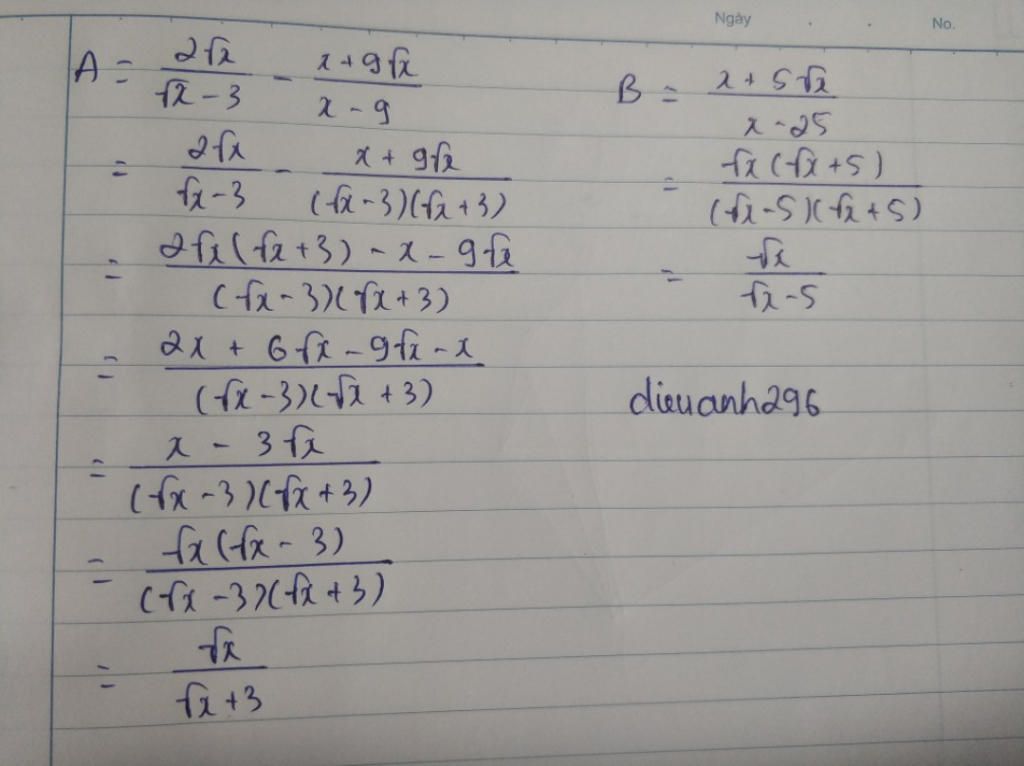 Ngày . . No.
A = 2√x / (√x - 3) - (x + 9√x) / (x - 9)
= 2√x / (√x - 3) - (x + 9√x) / ((√x - 3)(√x + 3))
= (2√x(√x + 3) - x - 9√x) / ((√x - 3)(√x + 3))
= (2x + 6√x - 9√x - x) / ((√x - 3)(√x + 3))
= (x - 3√x) / ((√x - 3)(√x + 3))
= √x(√x - 3) / ((√x - 3)(√x + 3))
= √x / (√x + 3)
B = (x + 5√x) / (x - 25)
= √x(√x + 5) / ((√x - 5)(√x + 5))
= √x / (√x - 5)
dieuanh296